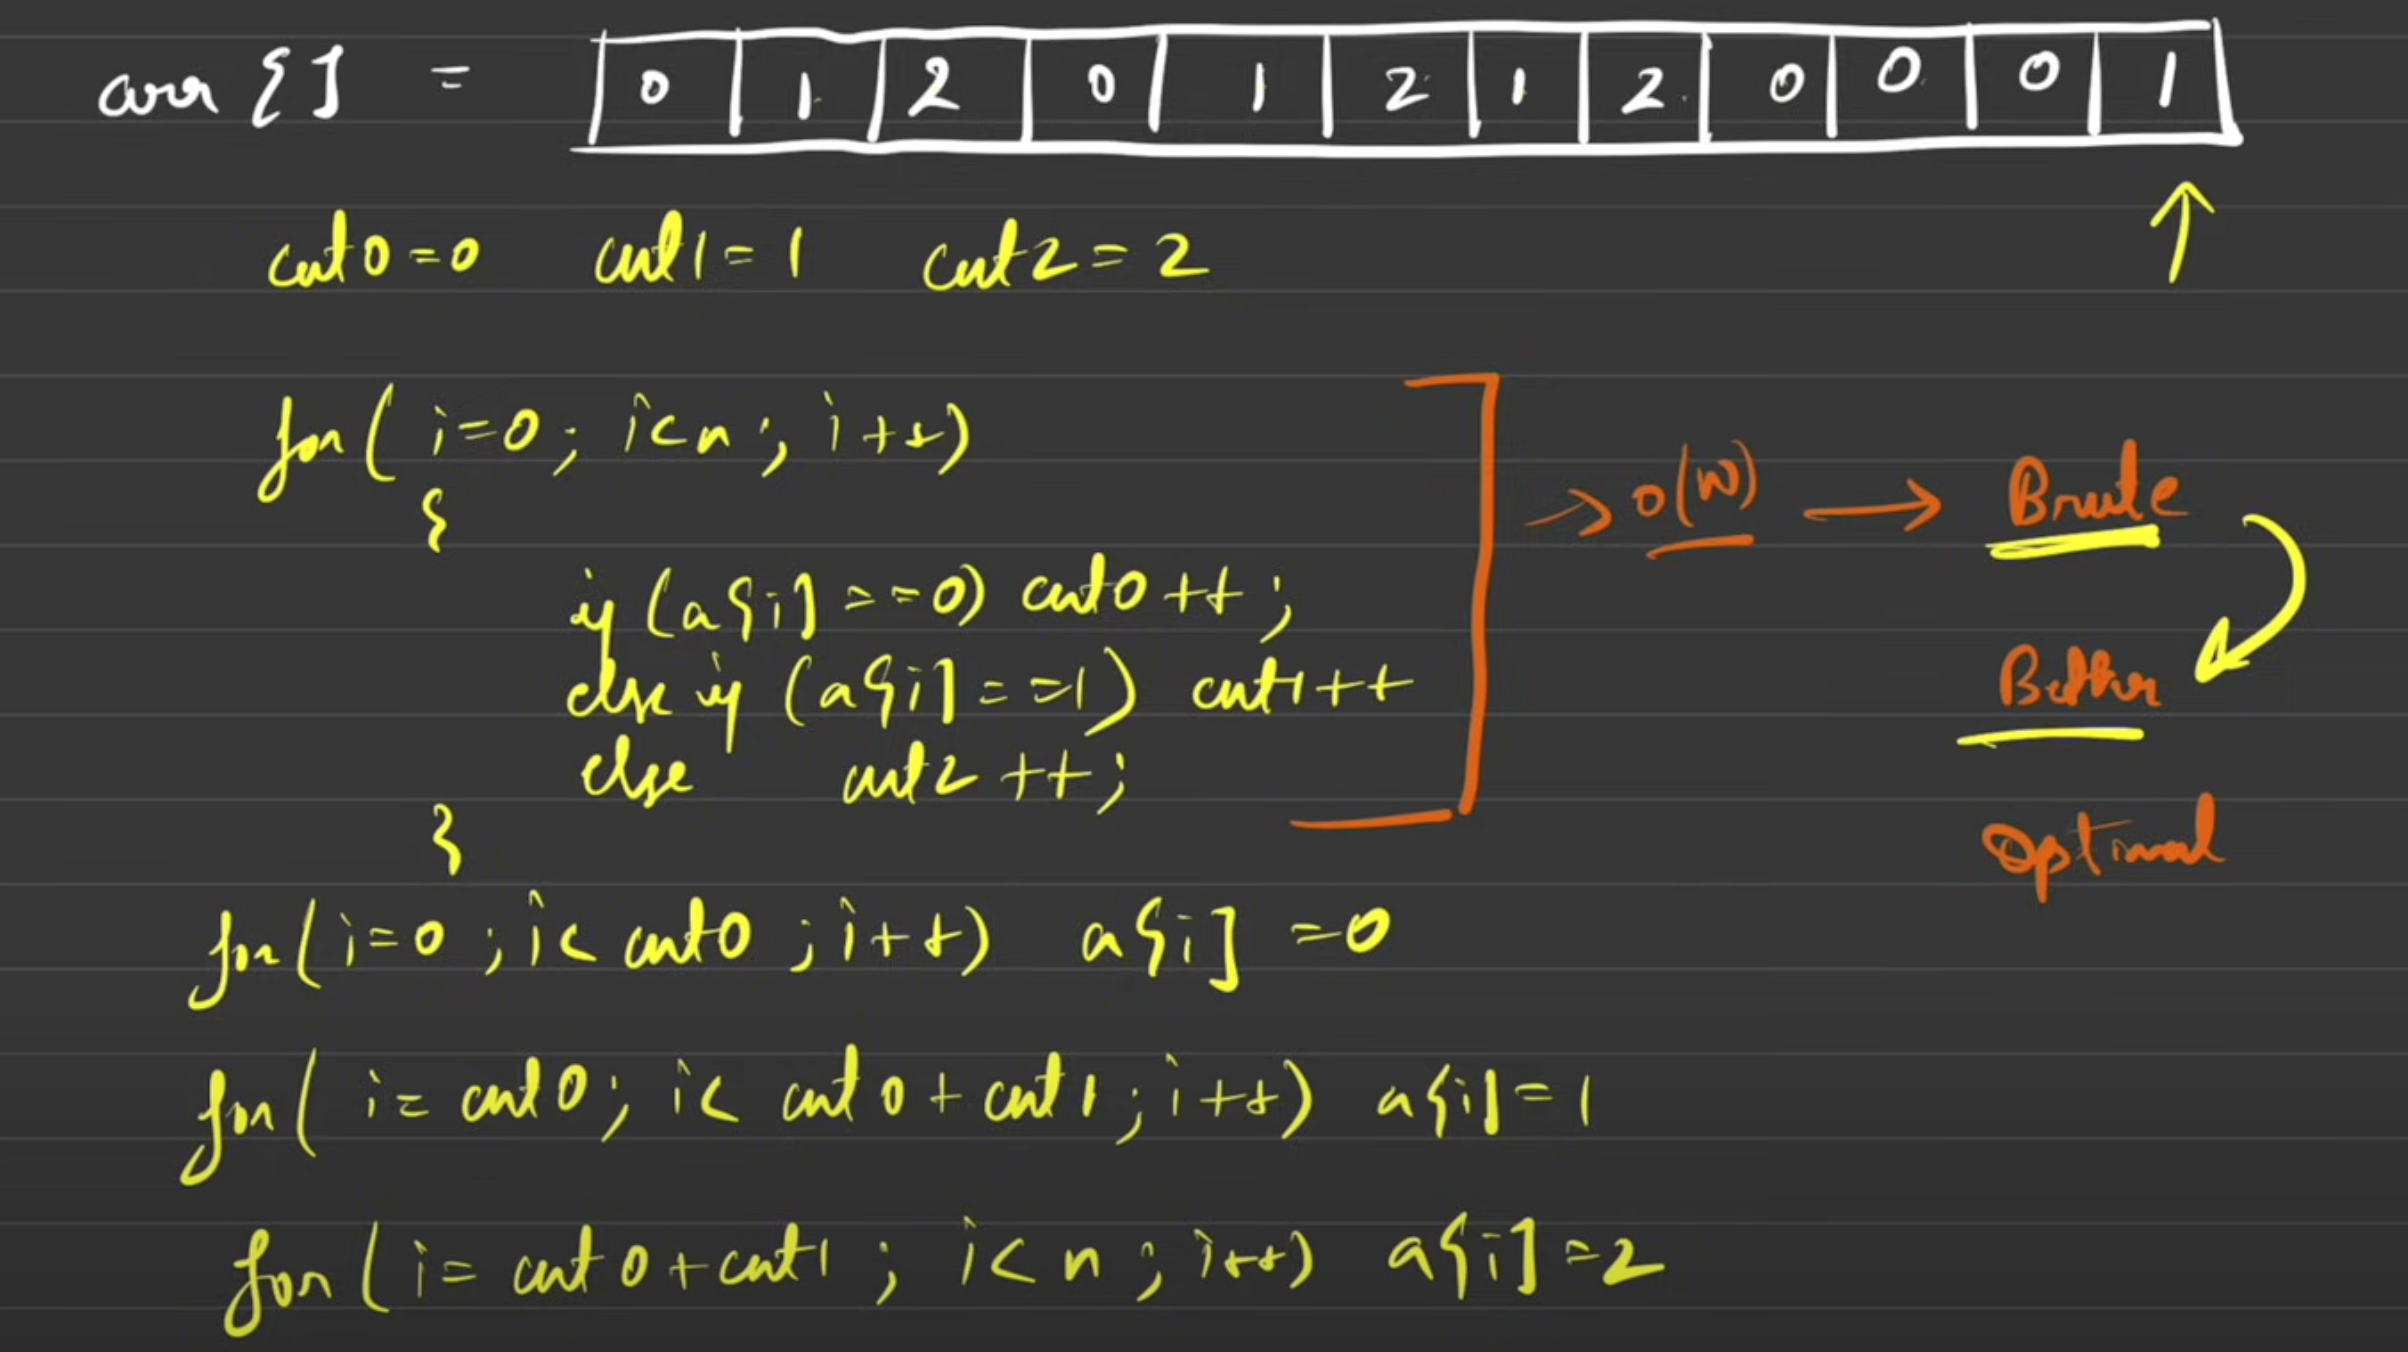 arr [] = 0 1 2 0 1 2 1 2 0 0 0 1
cnt0=0 cnt1=1 cnt2=2
for( i=0; i<n; i++)
{
if (a[i]==0) cnt0++;
else if (a[i]==1) cnt1++
else cnt2++;
}
→ O(N) → Brute
Better
Optimal
for(i=0; i< cnt0; i++) a[i]=0
for( i= cnt0; i< cnt0+cnt1; i++) a[i]=1
for( i= cnt0+cnt1; i<n; i++) a[i]=2